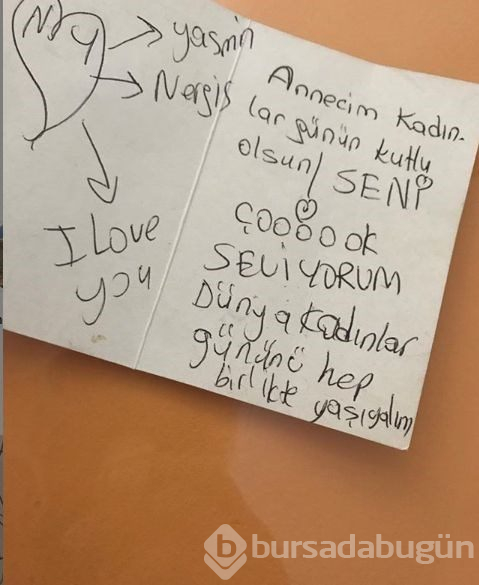 N y
yasmin
Nergis
I Love
you
Annecim Kadın-
lar günün kutlu
olsun! SENİ
ÇOOOOOK
SEViYORUM
Dünya kadınlar
gününü hep
birlikte yaşıyalım
b bursadabugün